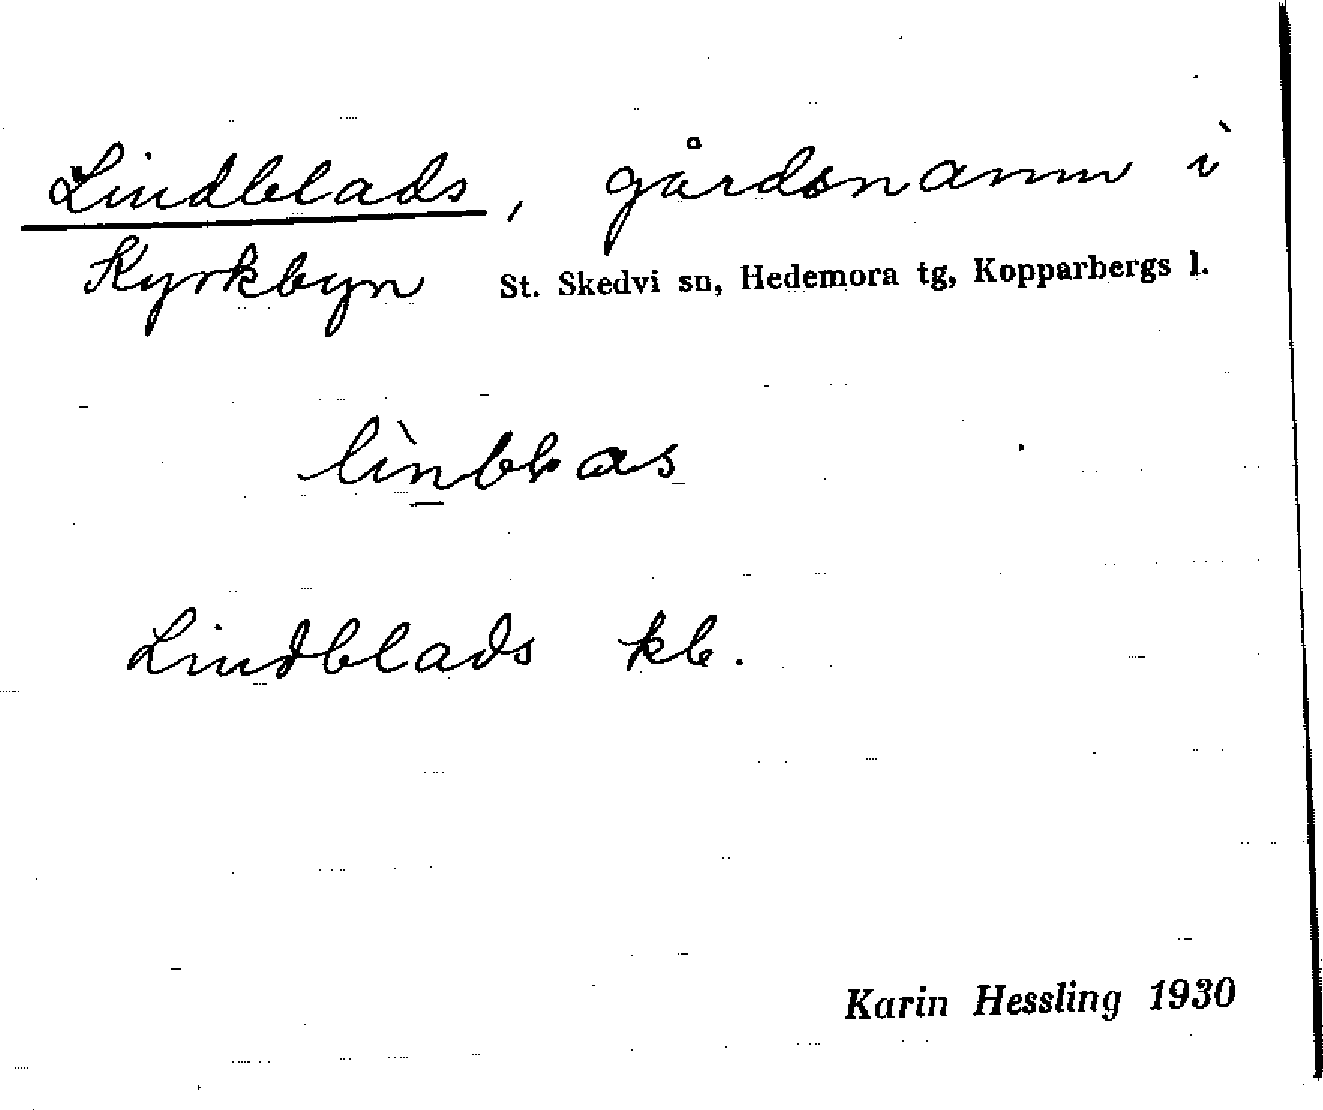 Lindblads, gårdsnamn i
Kyrkbyn St. Skedvi sn, Hedemora tg, Kopparbergs l.
Lindblads kb.
Karin Hessling 1930